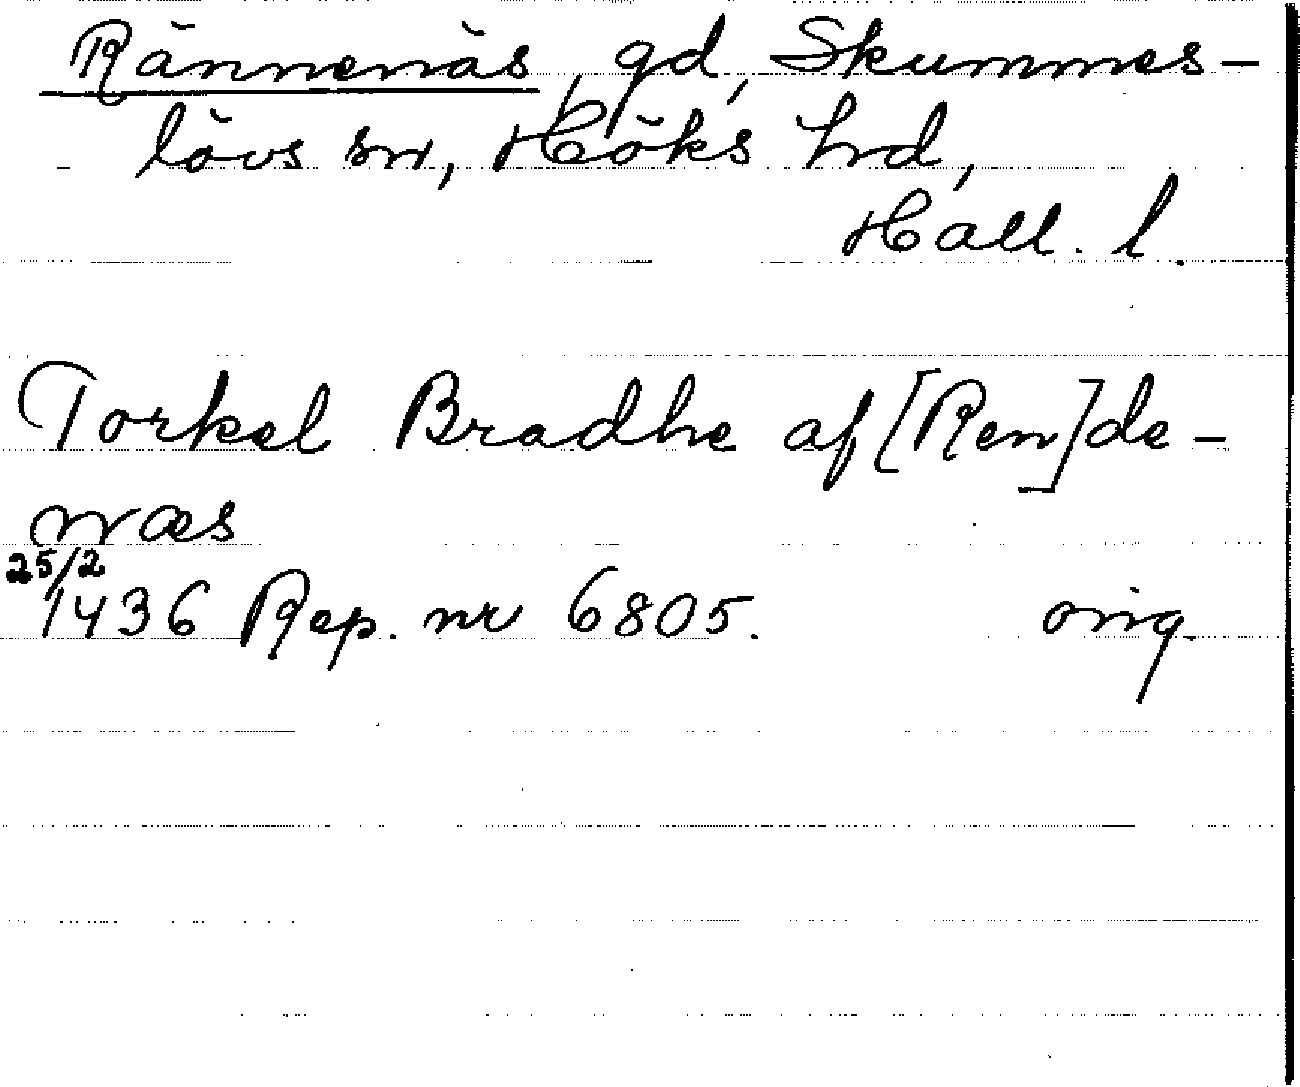 Rännenäs, gd, Skummes-
lövs sn, Höks hd,
Hall. l.
Torkel Bradhe af [Ren]de-
næs
25/2
1436 Rep. nr 6805. orig.